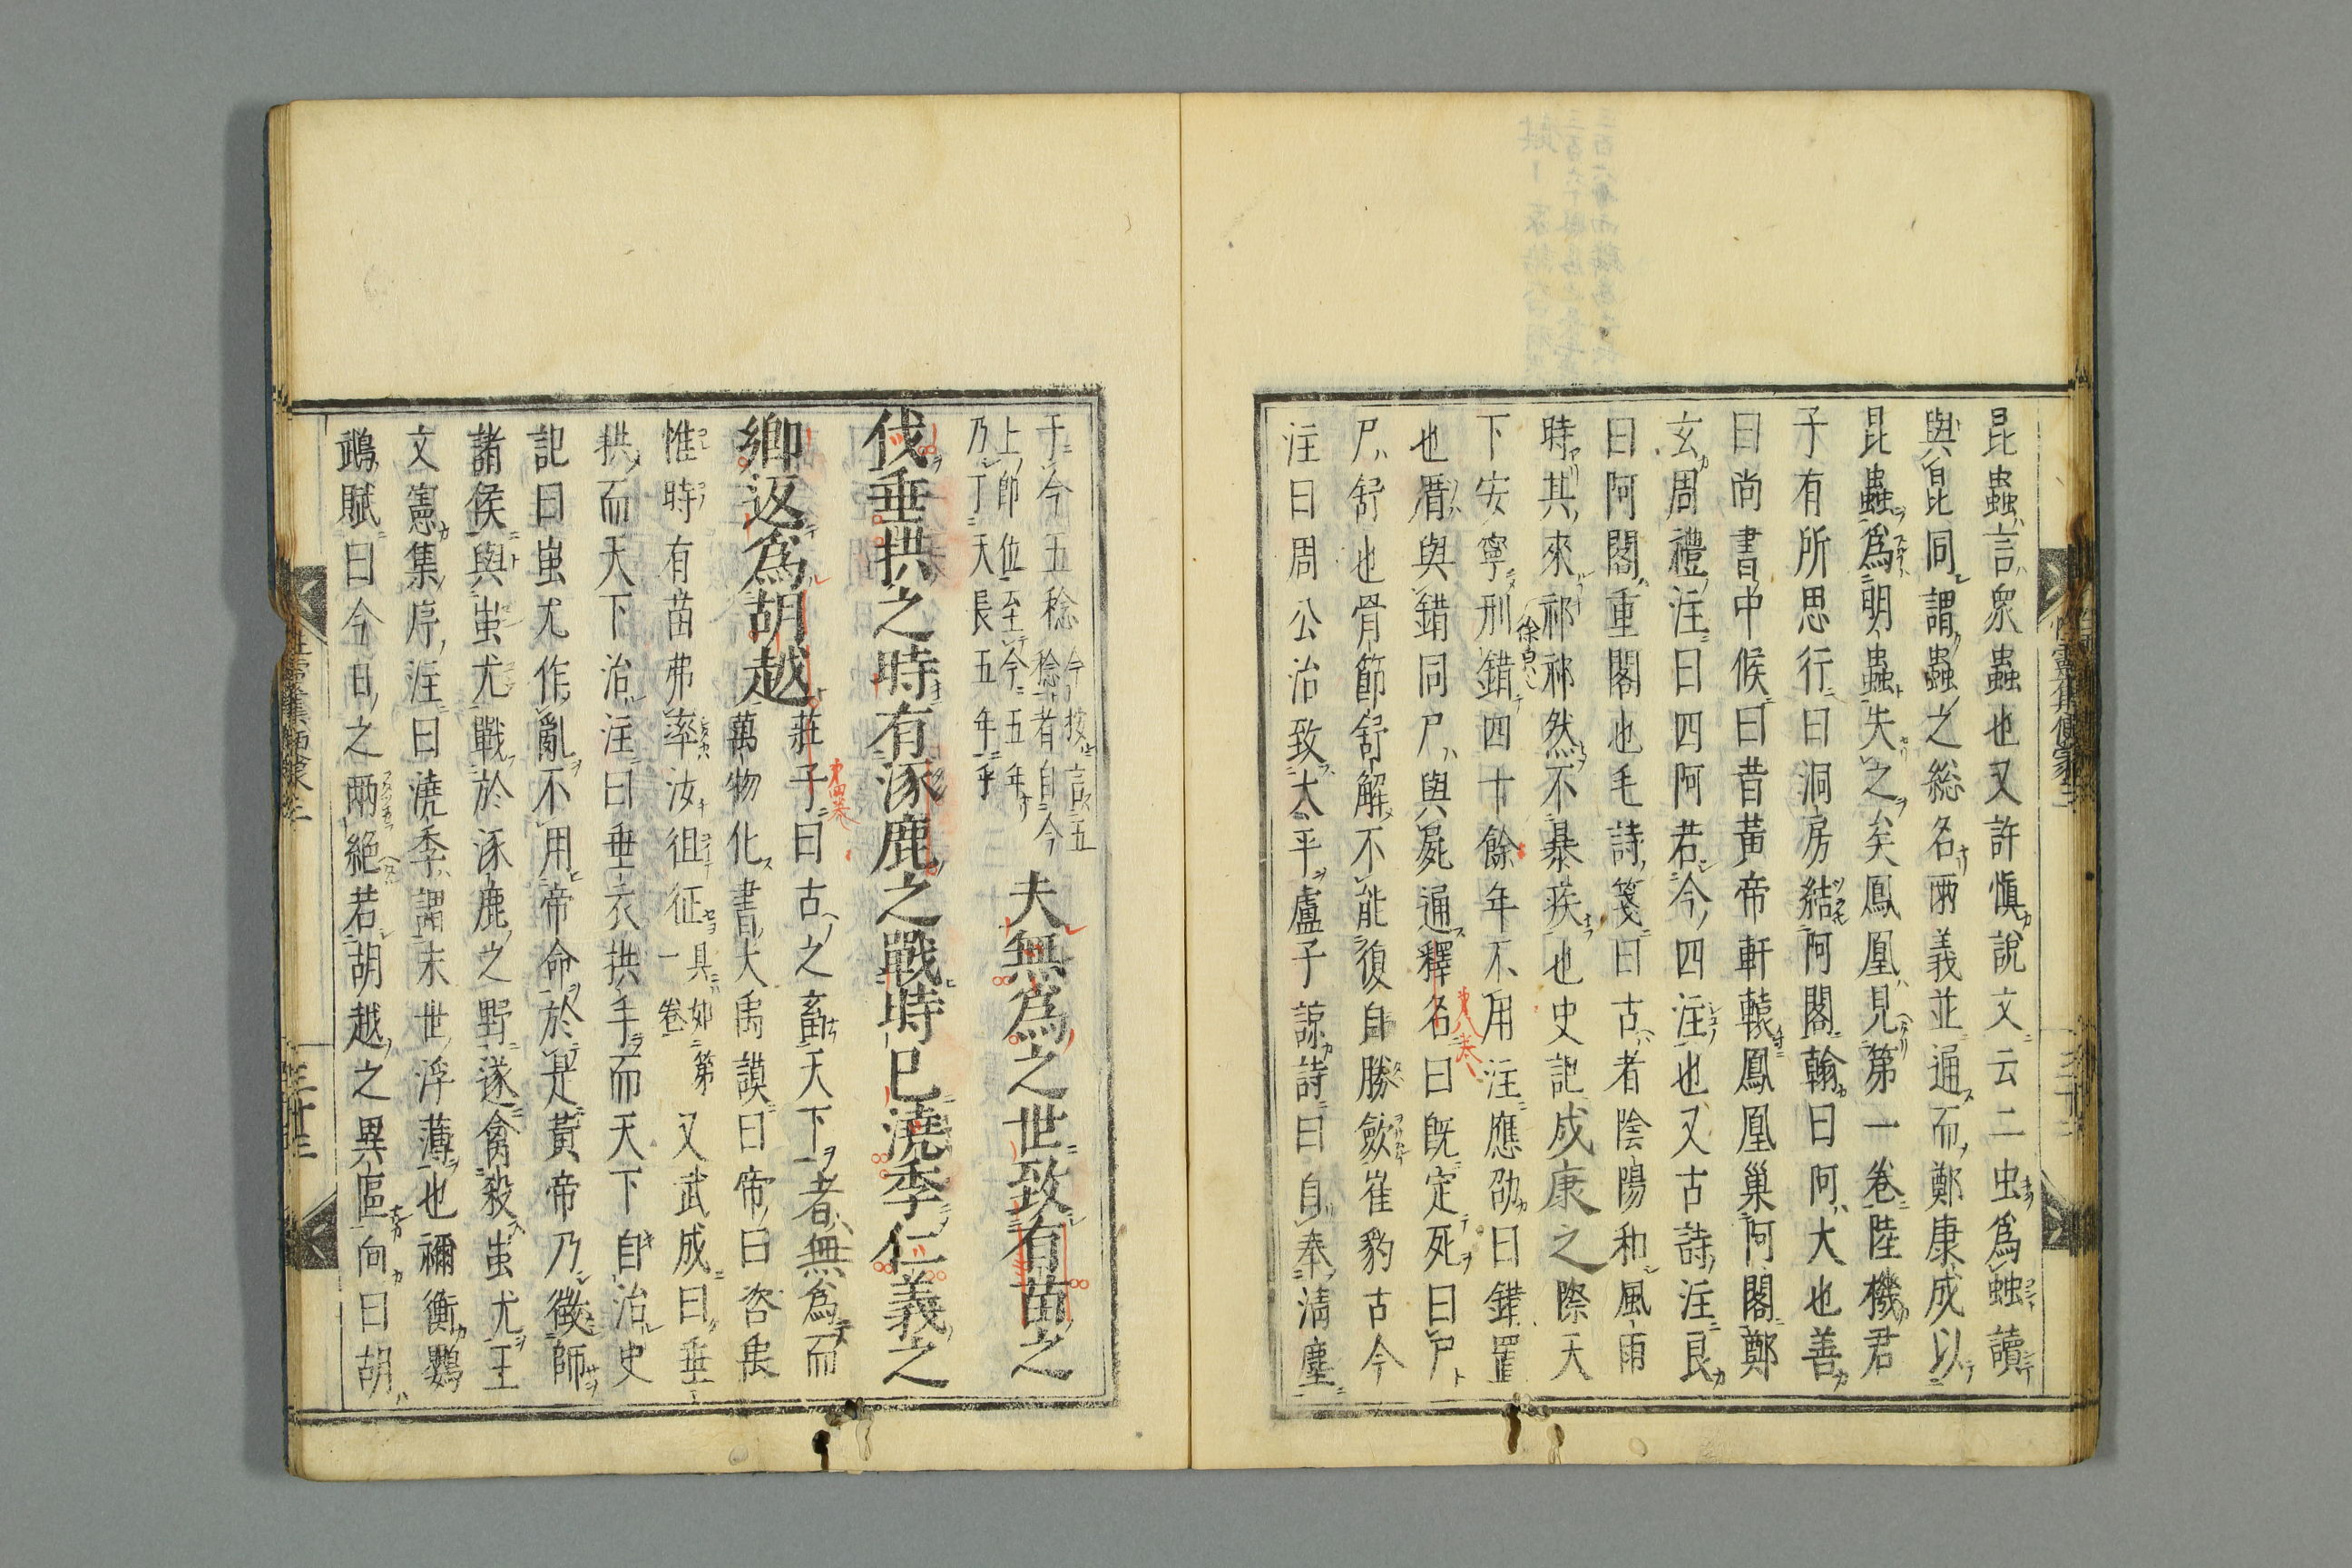 昆蟲言衆蟲也又許愼說文云二虫爲䖵讀
與昆同謂蟲之総名兩義並通而鄭康成以
昆蟲爲明蟲失之矣鳳凰見第一卷陸機君
子有所思行曰洞房結阿閣翰曰阿大也善
曰尚書中候曰昔黃帝軒轅鳳凰巢阿閣鄭
玄周禮注曰四阿若今四注也又古詩注良
曰阿閣重閣也毛詩箋曰古者陰陽和風雨
時其來祁祁然不暴疾也史記成康之際天
下安寧刑錯四十餘年不用注應劭曰錯置
也厝與錯同尸與屍通釋名曰旣定死曰尸
尸舒也骨節舒解不能復自勝歛崔豹古今
注曰周公治致太平盧子諒詩曰自奉淸塵
于今五稔今按言五
稔者自今
上即位至今五年
乃丁天長五年乎
夫無爲之世致有苗之
伐垂拱之時有涿鹿之戰時已澆季仁義之
鄉返爲胡越莊子曰古之畜天下者無爲而
萬物化書大禹謨曰帝曰咨禹
惟時有苗弗率汝徂征具如第
一卷
又武成曰垂
拱而天下治注曰垂衣拱手而天下自治史
記曰蚩尤作亂不用帝命於是黃帝乃徵師
諸侯與蚩尤戰於涿鹿之野遂禽殺蚩尤王
文憲集序注曰澆季謂末世浮薄也禰衡鸚
鵡賦曰今日之兩絕若胡越之異區向曰胡